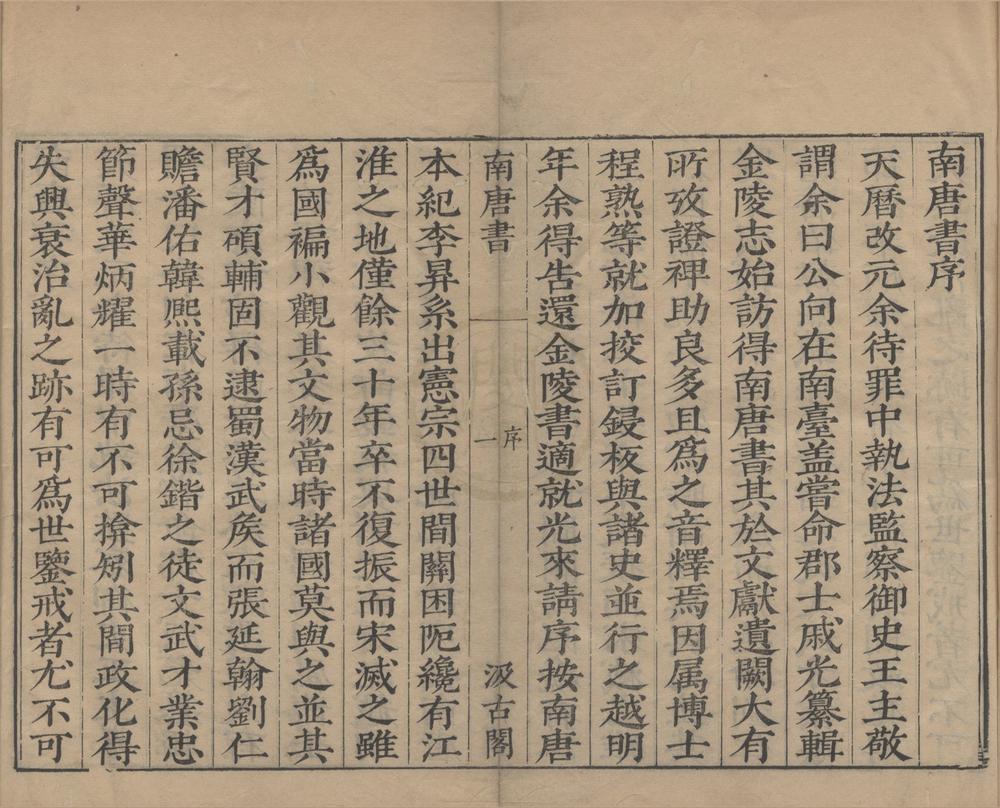 南唐書序
天曆改元余待罪中執法監察御史王主敬
謂余曰公向在南臺盖嘗命郡士戚光纂輯
金陵志始訪得南唐書其於文獻遺闕大有
所攷證裨助良多且爲之音釋焉因属博士
程熟等就加挍訂鋟板與諸史並行之越明
年余得告還金陵書適就光來請序按南唐
南唐書
序
一
汲古閣
本紀李昇系出憲宗四世間關困阨纔有江
淮之地僅餘三十年卒不復振而宋滅之雖
爲國褊小觀其文物當時諸國莫與之並其
賢才碩輔固不逮蜀漢武矦而張延翰劉仁
贍潘佑韓熙載孫忌徐鍇之徒文武才業忠
節聲華炳耀一時有不可揜矧其間政化得
失興衰治亂之跡有可爲世鑒戒者尤不可